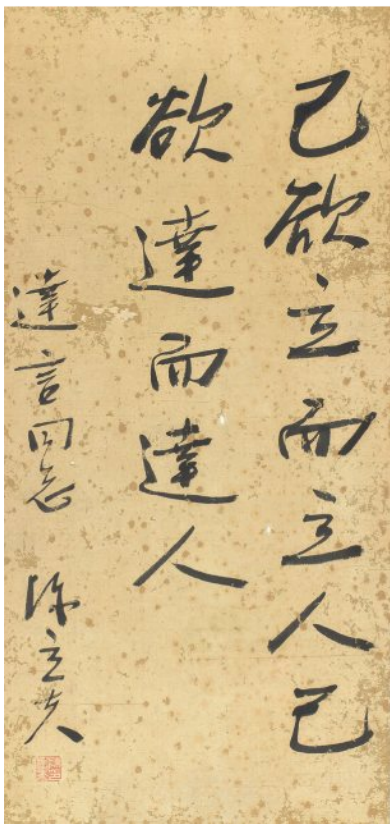 己欲立而立人己
欲達而達人
達言同志 陳立夫